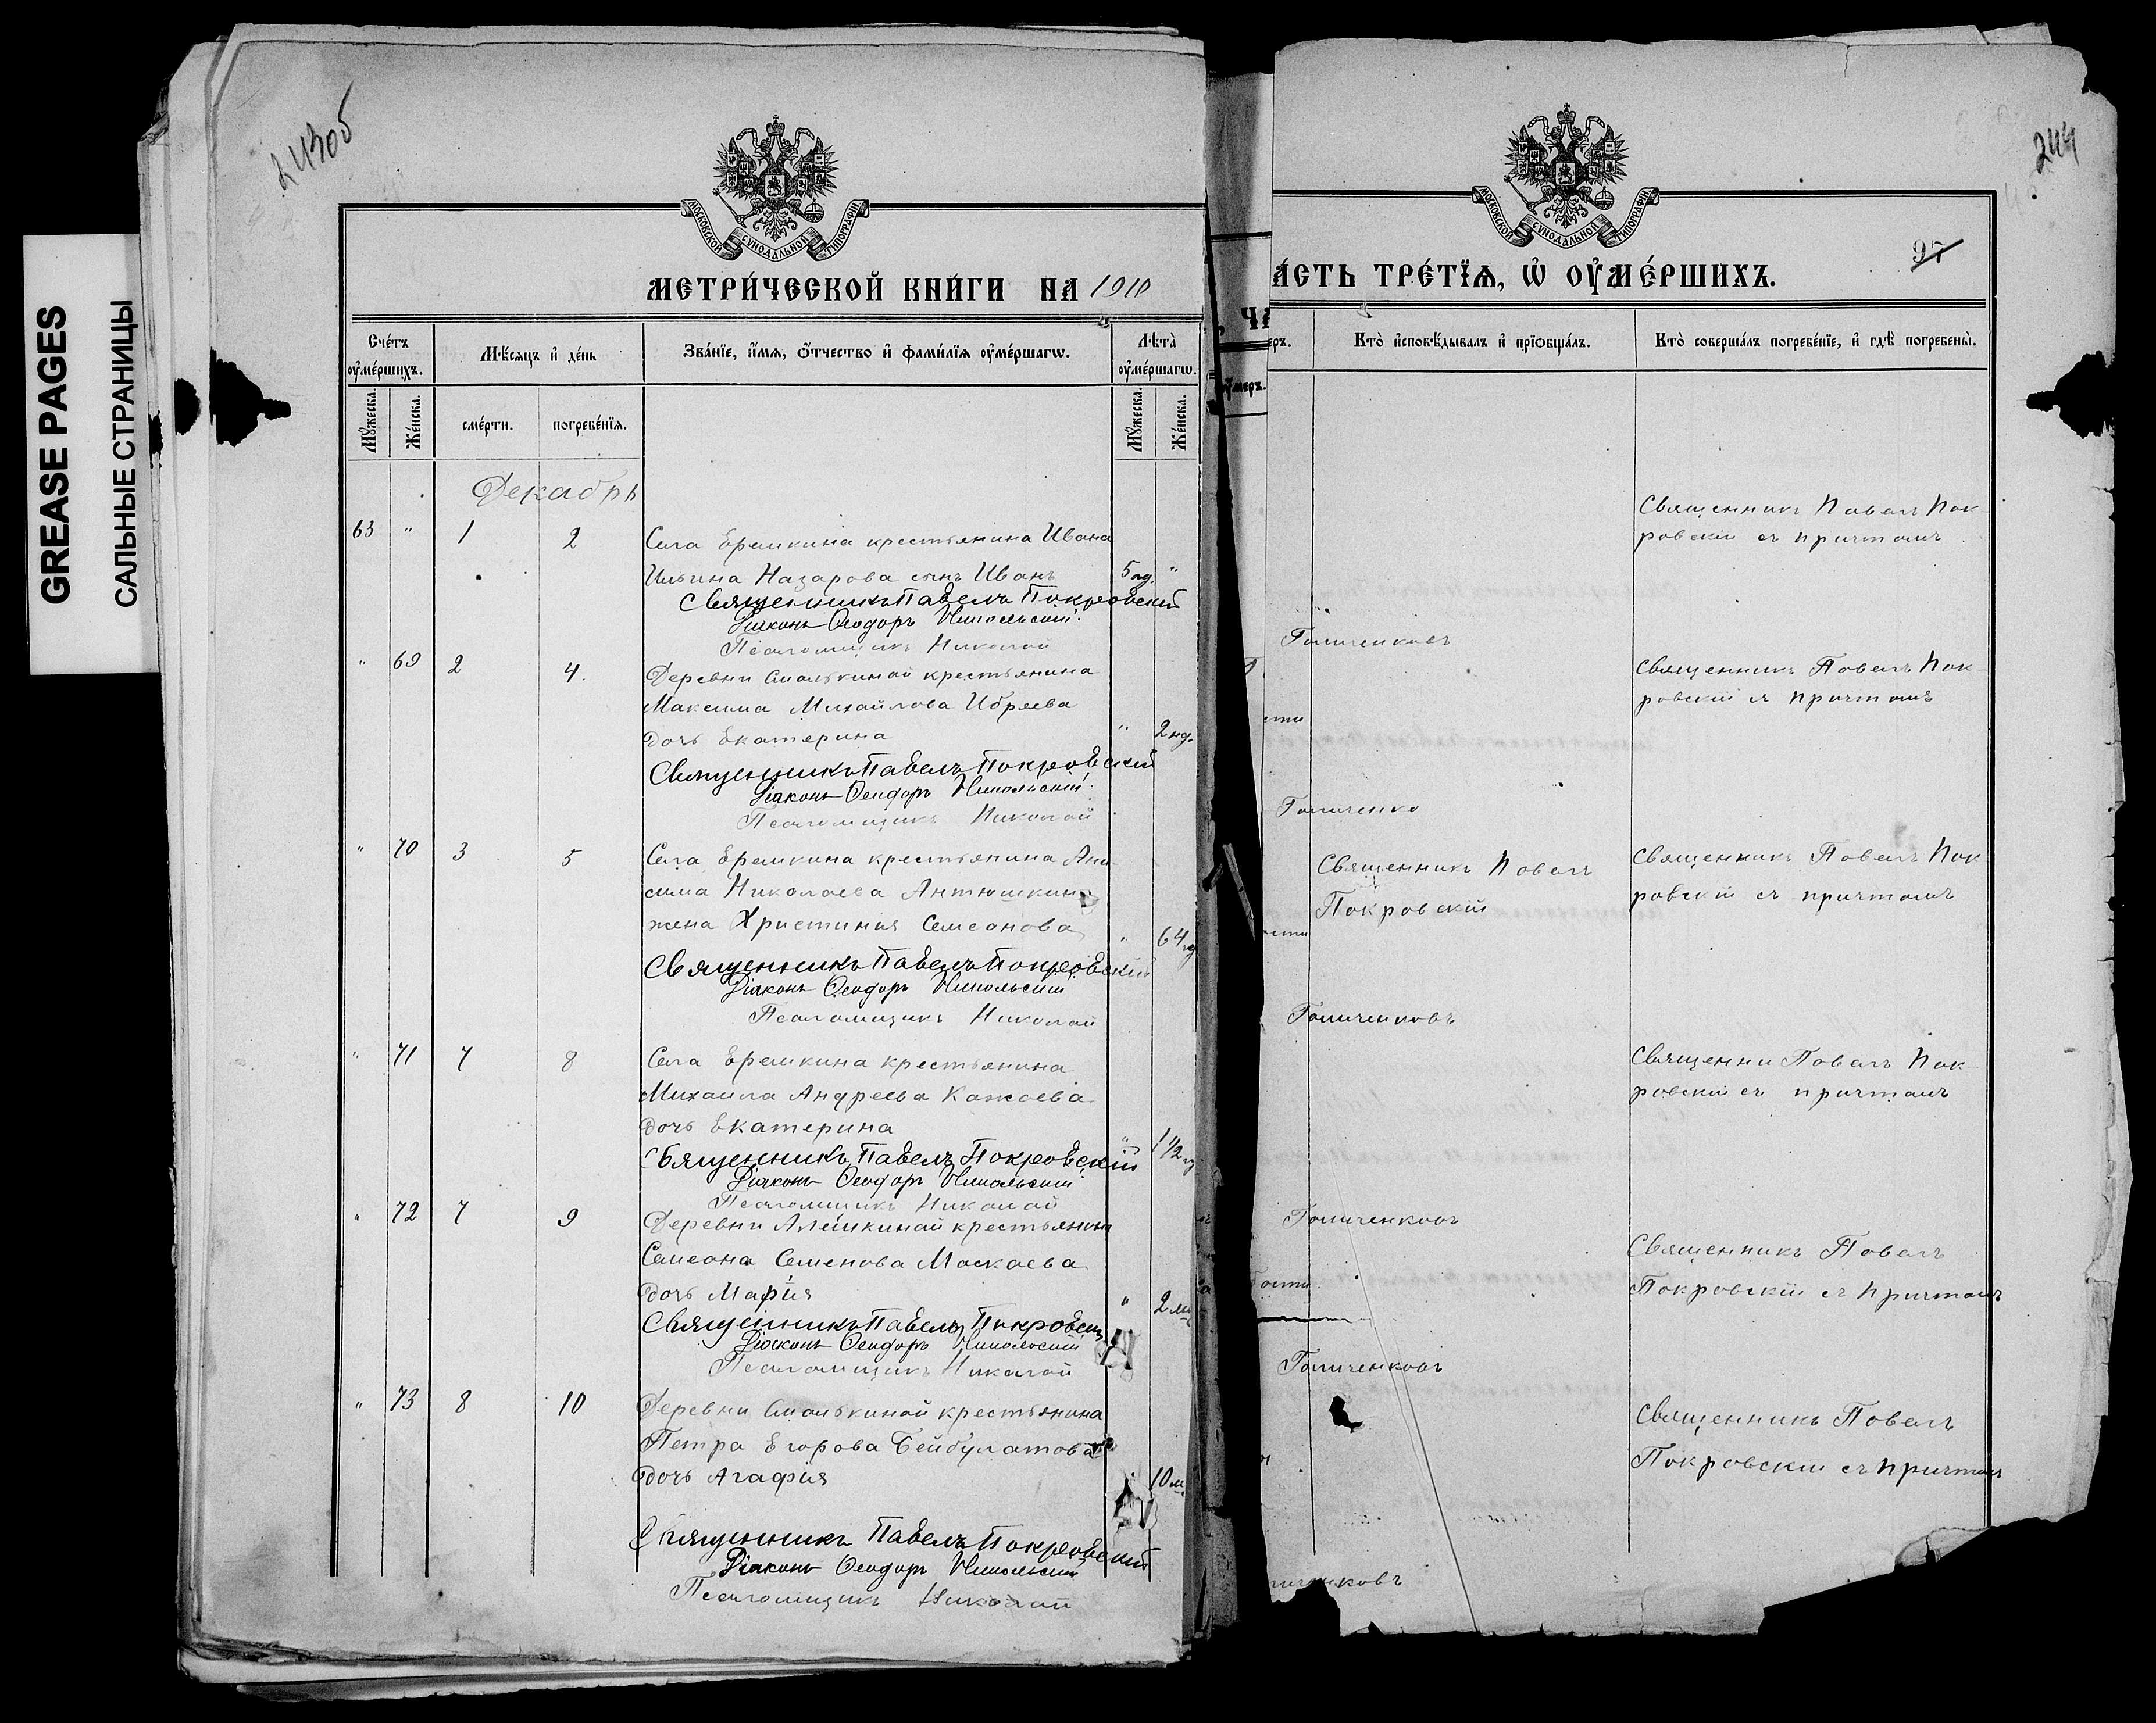 GREASE PAGES
САЛЬНЫЕ СТРАНИЦЫ
243об
МОСКОВСКОЙ СУНОДАЛЬНОЙ ТИПОГРАФИИ
МЕТРИ́ЧЕСКОЙ КНИ́ГИ НА 1910
Сче́тъ оу҆ме́ршихъ.
Мѣ́сяцъ и҆ де́нь
Зва́нїе, и҆́мя, ѻ҆́тчество и҆ фами́лїя оу҆ме́ршагѡ.
Лѣ́та оу҆ме́ршагѡ.
Мꙋ́жеска.
Же́нска.
сме́рти.
погребе́нїя.
Мꙋ́жеска.
Же́нска.
Декабрь
63 " 1 2 Села Еремкина крестьянина Ивана
Ильина Назарова сынъ Иванъ 5 нд. "
Священникъ Павелъ Покровскій
Діаконъ Ѳеодоръ Никольскій
Псаломщикъ Николай
" 69 2 4. Деревни Смолькиной крестьянина
Максима Михайлова Ибряева
дочь Екатерина " 2 нд.
Священникъ Павелъ Покровскій
Діаконъ Ѳеодоръ Никольскій
Псаломщикъ Николай
" 70 3 5 Села Еремкина крестьянина Ани
сима Николаева Антюшкина
жена Христиния Семеонова " 64
Священникъ Павелъ Покровскій
Діаконъ Ѳеодоръ Никольскій
Псаломщикъ Николай
" 71 7 8 Села Еремкина крестьянина
Михаила Андреева Кажаева
дочь Екатерина " 1 1/2
Священникъ Павелъ Покровскій
Діаконъ Ѳеодоръ Никольскій
Псаломщикъ Николай
" 72 7 9 Деревни Алешкиной крестьянина
Семеона Семенова Маскаева
дочь Марія " 2 м
Священникъ Павелъ Покровскій
Діаконъ Ѳеодоръ Никольскій
Псаломщикъ Николай
" 73 8 10 Деревни Смолькиной крестьянина
Петра Егорова Бейбулатова
дочь Агафія 10 м.
Священникъ Павелъ Покровскій
Діаконъ Ѳеодоръ Никольскій
Псаломщикъ Николай
244
МОСКОВСКОЙ СУНОДАЛЬНОЙ ТИПОГРАФИИ
97
А́СТЬ ТРЕ́ТЇЯ, Ѡ҆ ОУ҆МЕ́РШИХЪ.
Кто̀ и҆сповѣ́дывалъ и҆ прїѻбща́лъ.
Кто̀ соверша́лъ погребе́нїе, и҆ гдѣ̀ погребены̀.
Священникъ Павелъ Пок
ровскій съ причтомъ
Голиченковъ
Священникъ Павелъ Пок
ровскій съ причтомъ
Голиченко
Священникъ Павелъ
Покровскій
Священникъ Павелъ Пок
ровскій съ причтомъ
Голиченковъ
Священни Павелъ Пок
ровскій съ причтомъ
Голиченковъ
Священникъ Павелъ
Покровскій съ причтомъ
Голиченковъ
Священникъ Павелъ
Покровскій съ причтомъ
иченковъ